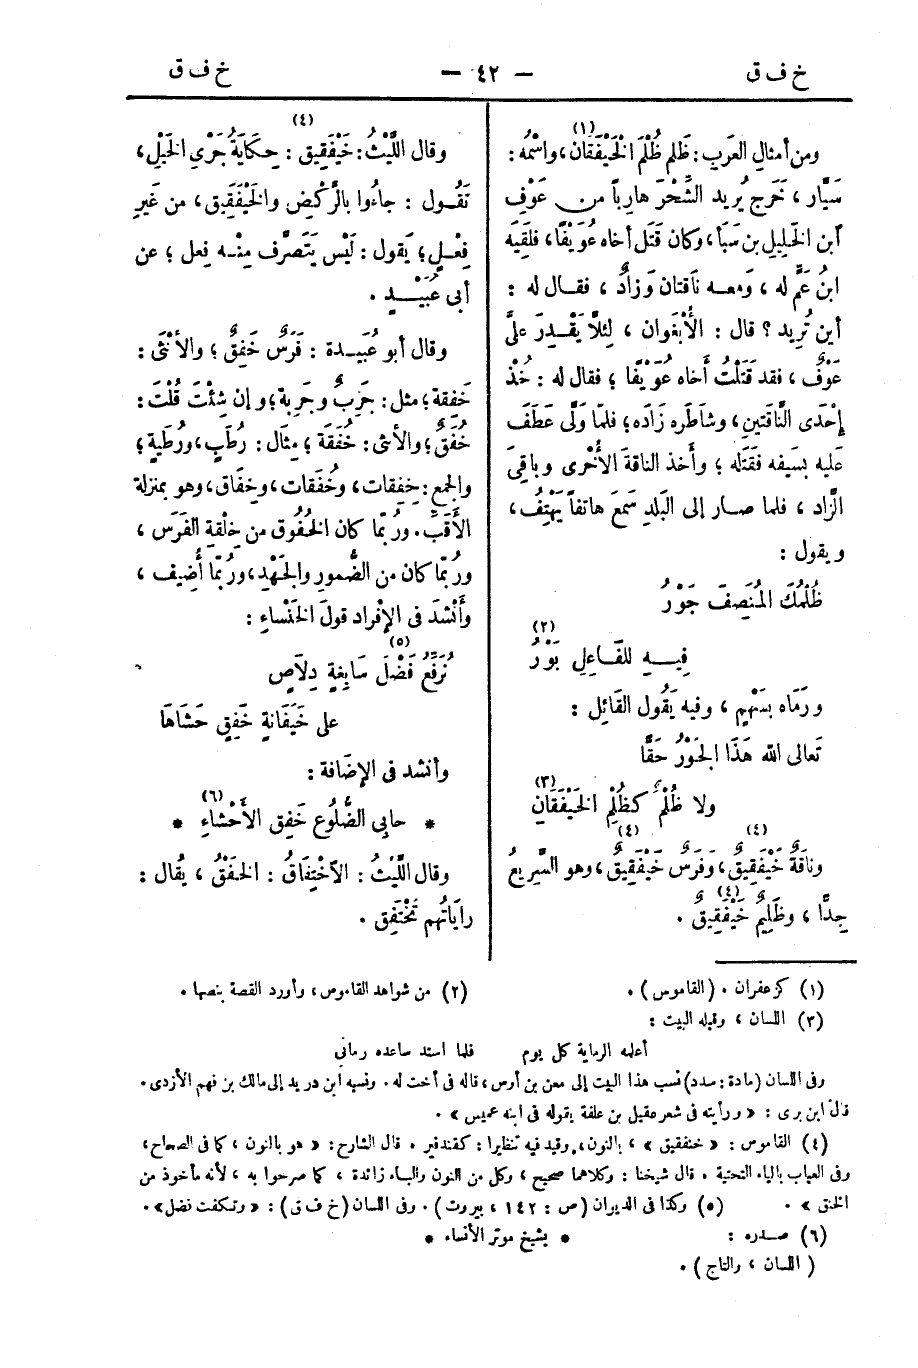 خ ف ق
— ٤٢ —
خ ف ق
ومن أمثالِ العَرَبِ: ظُلِم ظُلْمَ الخَيْفَقَان(١)، واسْمُه:
سَيَّار، خَرَج يُريد الشِّحْرَ هارِباً من عَوْفِ
ابن الخَلِيلِ بن سَبَأ، وكان قَتَل أخاه عُوَيْفًا، فلَقِيَه
ابنُ عَمٍّ له، ومعه نَاقتان وَزادٌ، فقال له:
أين تُرِيد؟ قال: الأُبْغَوان، لِئلاَّ يَقْدِرَ عليَّ
عَوْفٌ، فقد قَتَلْتُ أَخاه عُوَيْفًا؛ فقال له: خُذْ
إحْدَى النَّاقَتَين، وشاطَره زَادَه؛ فلمّا وَلَّى عَطَفَ
عَليه بسَيفه فقَتله؛ وأَخذ الناقةَ الأُخْرى وباقِيَ
الزَّاد، فلما صار إلى البَلَدِ سَمِعَ هاتفاً يَهْتِفُ،
ويقول:
ظُلْمُكَ المُنصِفَ جَوْرُ
فِيه للفَاعِلِ بَوْرُ(٢)
ورَمَاه بسَهْمٍ، وفيه يَقُول القَائِل:
تَعالى الله هَذَا الجَوْرُ حَقًّا
ولا ظُلْمٌ كظُلْمِ الخَيْفَقَانِ(٣)
ونَاقَةٌ خَيْفَقِيقٌ(٤)، وفَرَسٌ خَيْفَقِيقٌ(٤)، وهو السَّرِيعُ
جِدًّا، وظَلِيمٌ خَيْفَقِيقٌ(٤).
وقال اللَّيْثُ: خَيْفَقِيق(٤): حِكَايَةُ جَرْيِ الخَيْلِ،
تَقُول: جاءُوا بالرَّكْضِ والخَيْفَقِيق، من غَيرِ
فِعْلٍ؛ يَقول: لَيْس يَتَصرَّف مِنْه فِعل؛ عن
أبى عُبَيْدٍ.
وقال أبو عُبَيدة: فَرَسٌ خَفِقٌ؛ والأُنْثَى:
خَفِقة؛ مثل: جَرِبٌ وجَرِبة؛ وإن شِئْتَ قُلْتَ:
خُفَقٌ؛ والأنثى: خُفَقَة؛ مِثَال: رُطَبٍ، ورُطَبةٍ؛
والجمع: خَفِقات، وخُفَقات، وخِفَاق، وهو بمنزلة
الأَقَبِّ. ورُبّما كان الخُفُوق من خِلْقةِ الفَرَس،
ورُبّما كان من الضُّمور والجَهْدِ، ورُبّما أُضِيف،
وأَنْشَدَ فى الإفْراد قولَ الخَنْساءِ:
نُرَفِّعُ فَضْلَ(٥) سَابِغَةٍ دِلاَصٍ
على خَيفَانةٍ خَفِقٍ حَشَاهَا
وأنشد فى الإضَافة:
* حابِى الضُّلُوعِ خَفِق الأَحْشَاءِ(٦) *
وقال اللَّيْثُ: الاخْتِفَاقُ: الخَفْقُ، يُقال:
رايَاتُهم تَخْتَفِق.
(١) كزعفران. (القاموس).
(٢) من شواهد القاموس، وأورد القصة بنصها.
(٣) اللسان، وقبله البيت:
أعلمه الرماية كل يوم فلما استد ساعده رمانى
وفى اللسان (مادة: سدد) نسب هذا البيت إلى معن بن أوس، قاله فى أخت له. ونسبه ابن دريد إلى مالك بن فهم الأزدى.
قال ابن برى: «ورأيته فى شعر عقيل بن علفة يقوله فى ابنه عميس».
(٤) القاموس: «خنفقيق»، بالنون، وقيد فيه تنظيرا: كقندفير. قال الشارح: «هو بالنون، كما فى الصحاح،
وفى العباب بالياء التحتية. قال شيخنا: وكلاهما صحيح، وكل من النون والياء زائدة، كما صرحوا به، لأنه مأخوذ من
الخفق».
(٥) وكذا فى الديوان (ص: ١٤٢، بيروت). وفى اللسان (خ ف ق): «وتكفت فضل».
(٦) صدره:
* بشيخ موتر الأنساء *
(اللسان، والتاج).